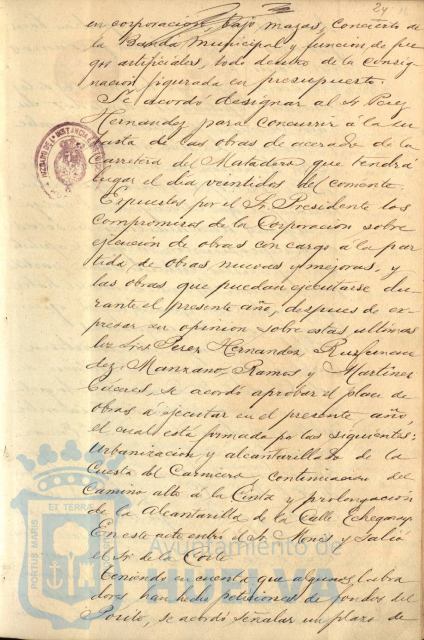 24
en corporacion, bajo mazas, concierto de
la Banda Municipal y funcion de fue
gos artificiales, todo dentro de la consig
nacion figurada en presupuesto.
Se acordo designar al Sr Perez
Hernandez para concurrir á la su
basta de las obras de acerado de la
Carretera del Matadero que tendrá
lugar el dia veintidos del corriente.
Expuestos por el Sr. Presidente los
compromisos de la Corporacion sobre
ejecucion de obras con cargo á la par
tida de obras nuevas y mejoras, y
las obras que puedan ejecutarse du
rante el presente año, despues de ex-
presar su opinion sobre estas ultimas
los Sres. Perez Hernandez,
dez, Manzano, Ramos y Martinez
Caceres, se acordó aprobar el plan de
obras a ejecutar en el presente año,
el cual está formado por las siguientes:
Urbanizacion y alcantarillado de la
Cuesta del Carnicero, continuacion del
Camino alto á la Cinta y prolongacion
de la Alcantarilla de la Calle Echegaray.
En este acto entró el Sr. y Salió
el Sr. de la Corte
Teniendo en cuenta que algunos labra
dores han hecho peticiones de fondos del
Posito, se acordó señalar un plazo de
PORTUS MARIS ET TERRAE
Ayuntamiento de
HUELVA